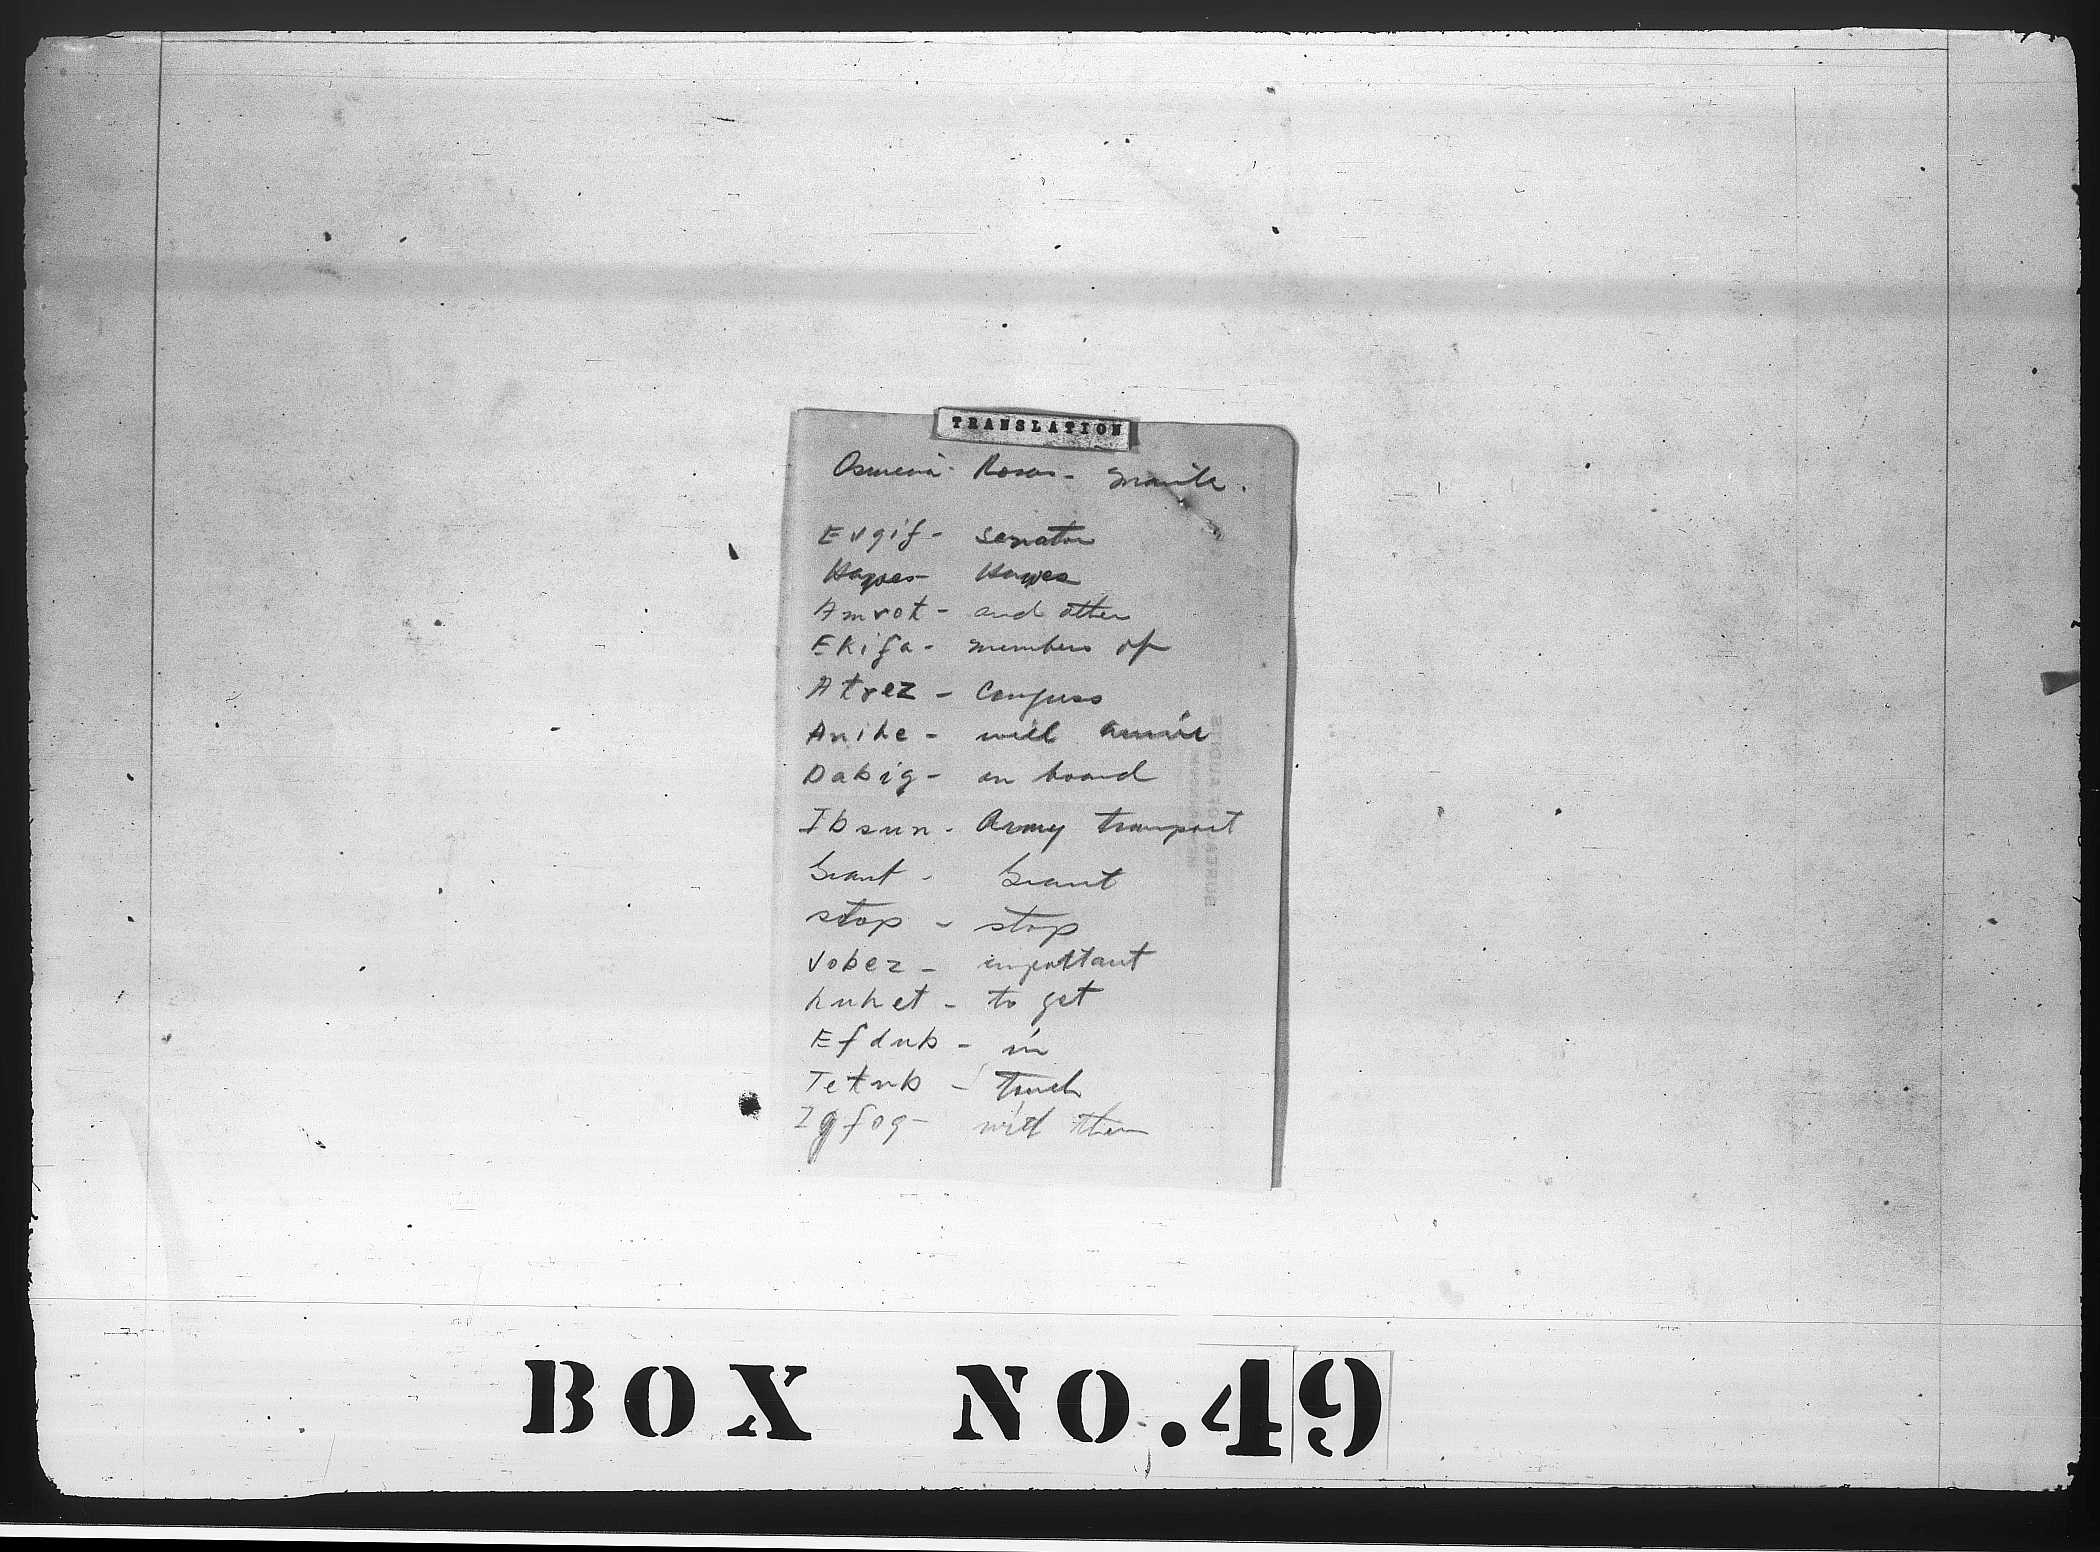 TRANSLATION
Osmena - Roxas - Manila.
Evgif - senator
Hawes - Hawes
Amrot - and other
Ekifa - members of
Atrez - Congress
Anihe - will arrive
Dabig - on board
Ibsun - Army transport
Grant - Grant
stop - stop
Vobez - important
Luhet - to get
Efdub - in
Tetub - touch
Igfog - with them
BUREAU OF AUDITS
BOX NO. 49